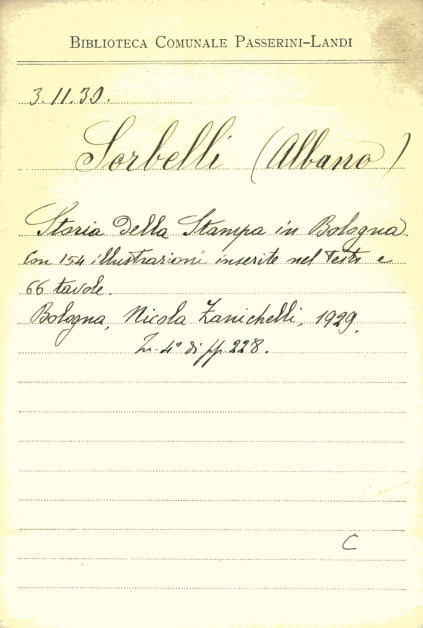 BIBLIOTECA COMUNALE PASSERINI-LANDI
3.11.30.
Sorbelli (Albano)
Storia della Stampa in Bologna.
Con 154 illustrazioni inserite nel Testo e
66 tavole.
Bologna, Nicola Zanichelli, 1929.
In-4° di pp 228.
C